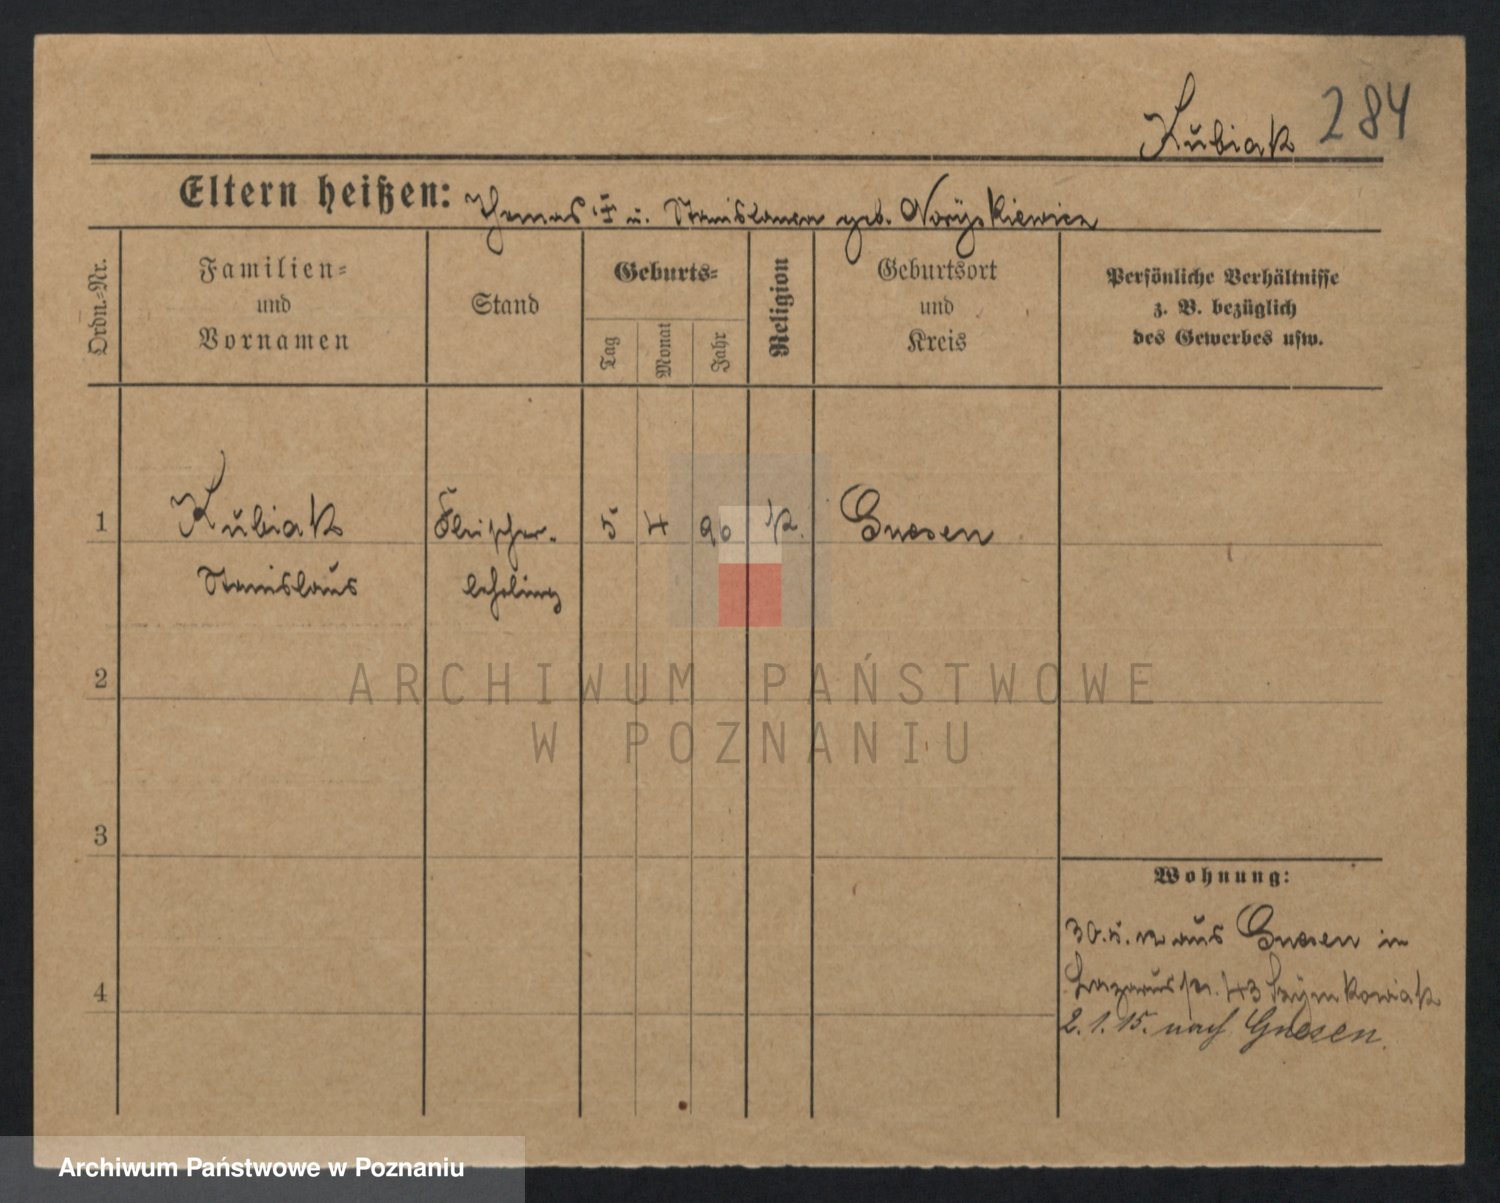 Kubiak 284
Eltern heißen: Thomas † u. Stanislawa geb.
Ordn.-Nr.
Familien-
und
Vornamen
Stand
Geburts-
Tag
Monat
Jahr
Religion
Geburtsort
und
Kreis
Persönliche Verhältnisse
z. B. bezüglich
des Gewerbes usw.
1 Kubiak Fleischer- 5 4 90 k. Gnesen
Stanislaus lehrling
2
3
4
Wohnung:
30.5. aus Gnesen in
43
2.1.15. nach Gnesen.
ARCHIWUM PAŃSTWOWE
W POZNANIU
Archiwum Państwowe w Poznaniu